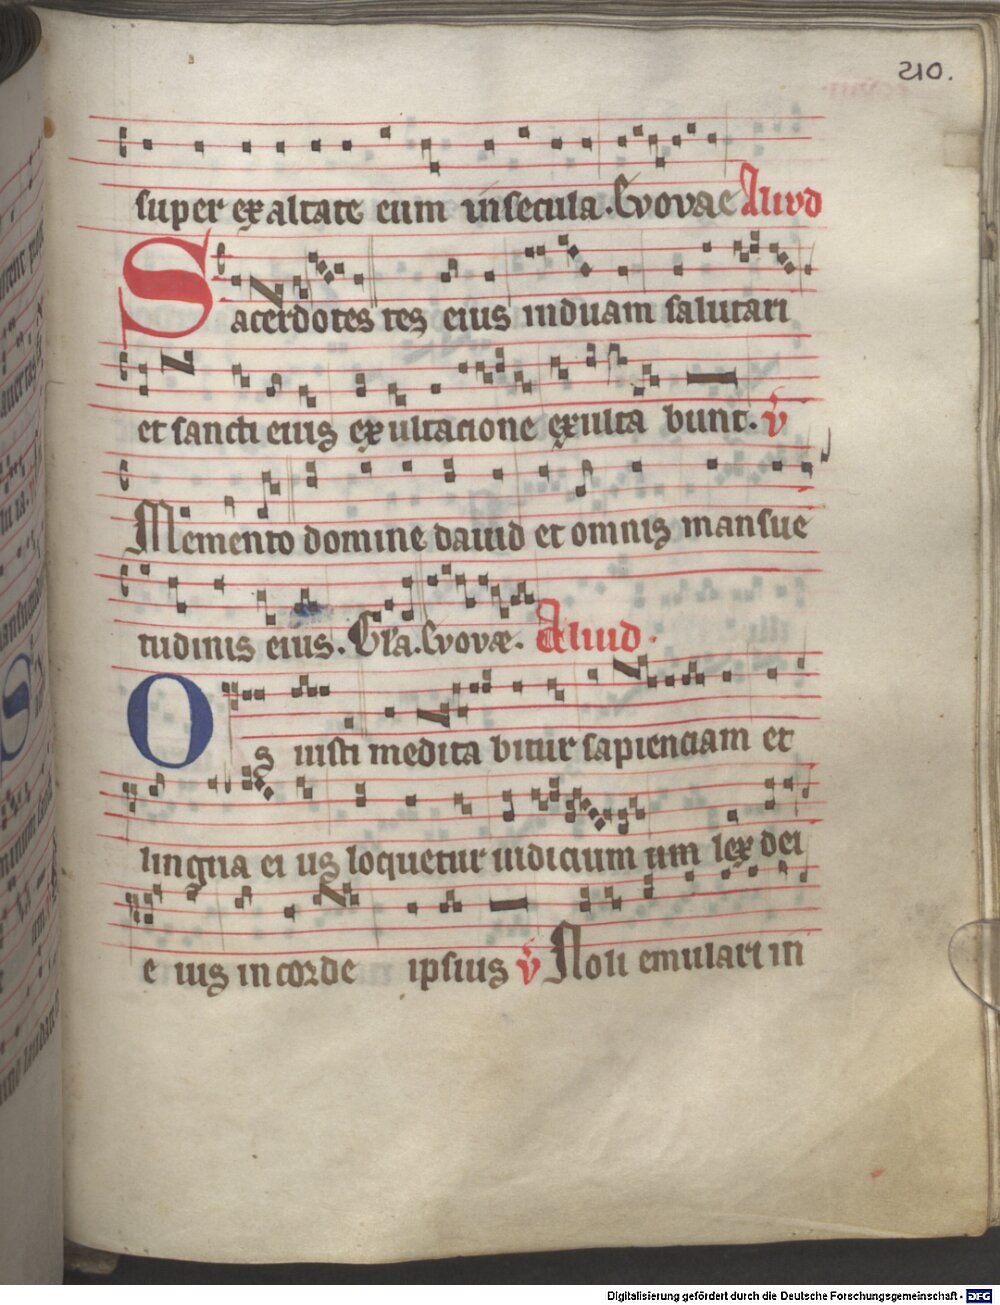 210.
super exaltate eum in secula. Evovae Aliud
Sacerdotes tes eius induam salutari
et sancti eius exultacione exulta bunt. v
Memento domine dauid et omnis mansue
tudinis eius. Gla. Evovae. Aliud.
Os iusti medita bitur sapienciam et
lingua ei us loquetur iudicium um lex dei
e ius in corde ipsius v Noli emulari in
Digitalisierung gefördert durch die Deutsche Forschungsgemeinschaft - DFG